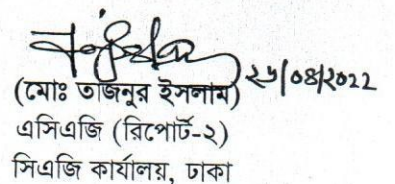 (মোঃ তাজনুর ইসলাম) ২৬/০৪/২০২২
এসিএজি (রিপোর্ট-২)
সিএজি কার্যালয়, ঢাকা